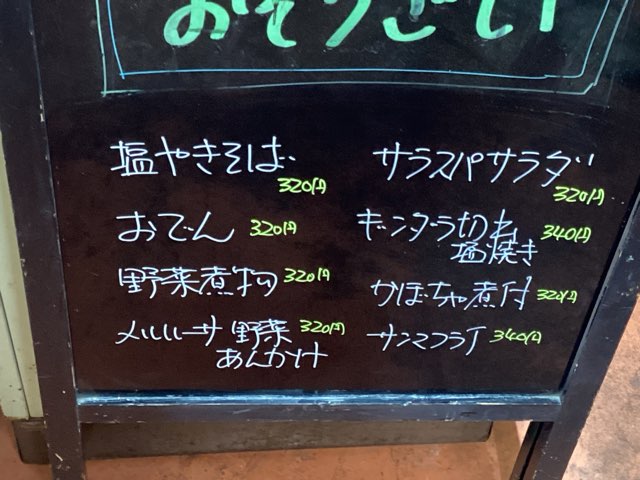 塩やきそば
320円
おでん 320円
野菜煮物 320円
メルルーサ野菜 320円
あんかけ
サラスパサラダ
320円
ギンダラ切身 340円
塩焼き
かぼちゃ煮付 320円
サンマフライ 340円